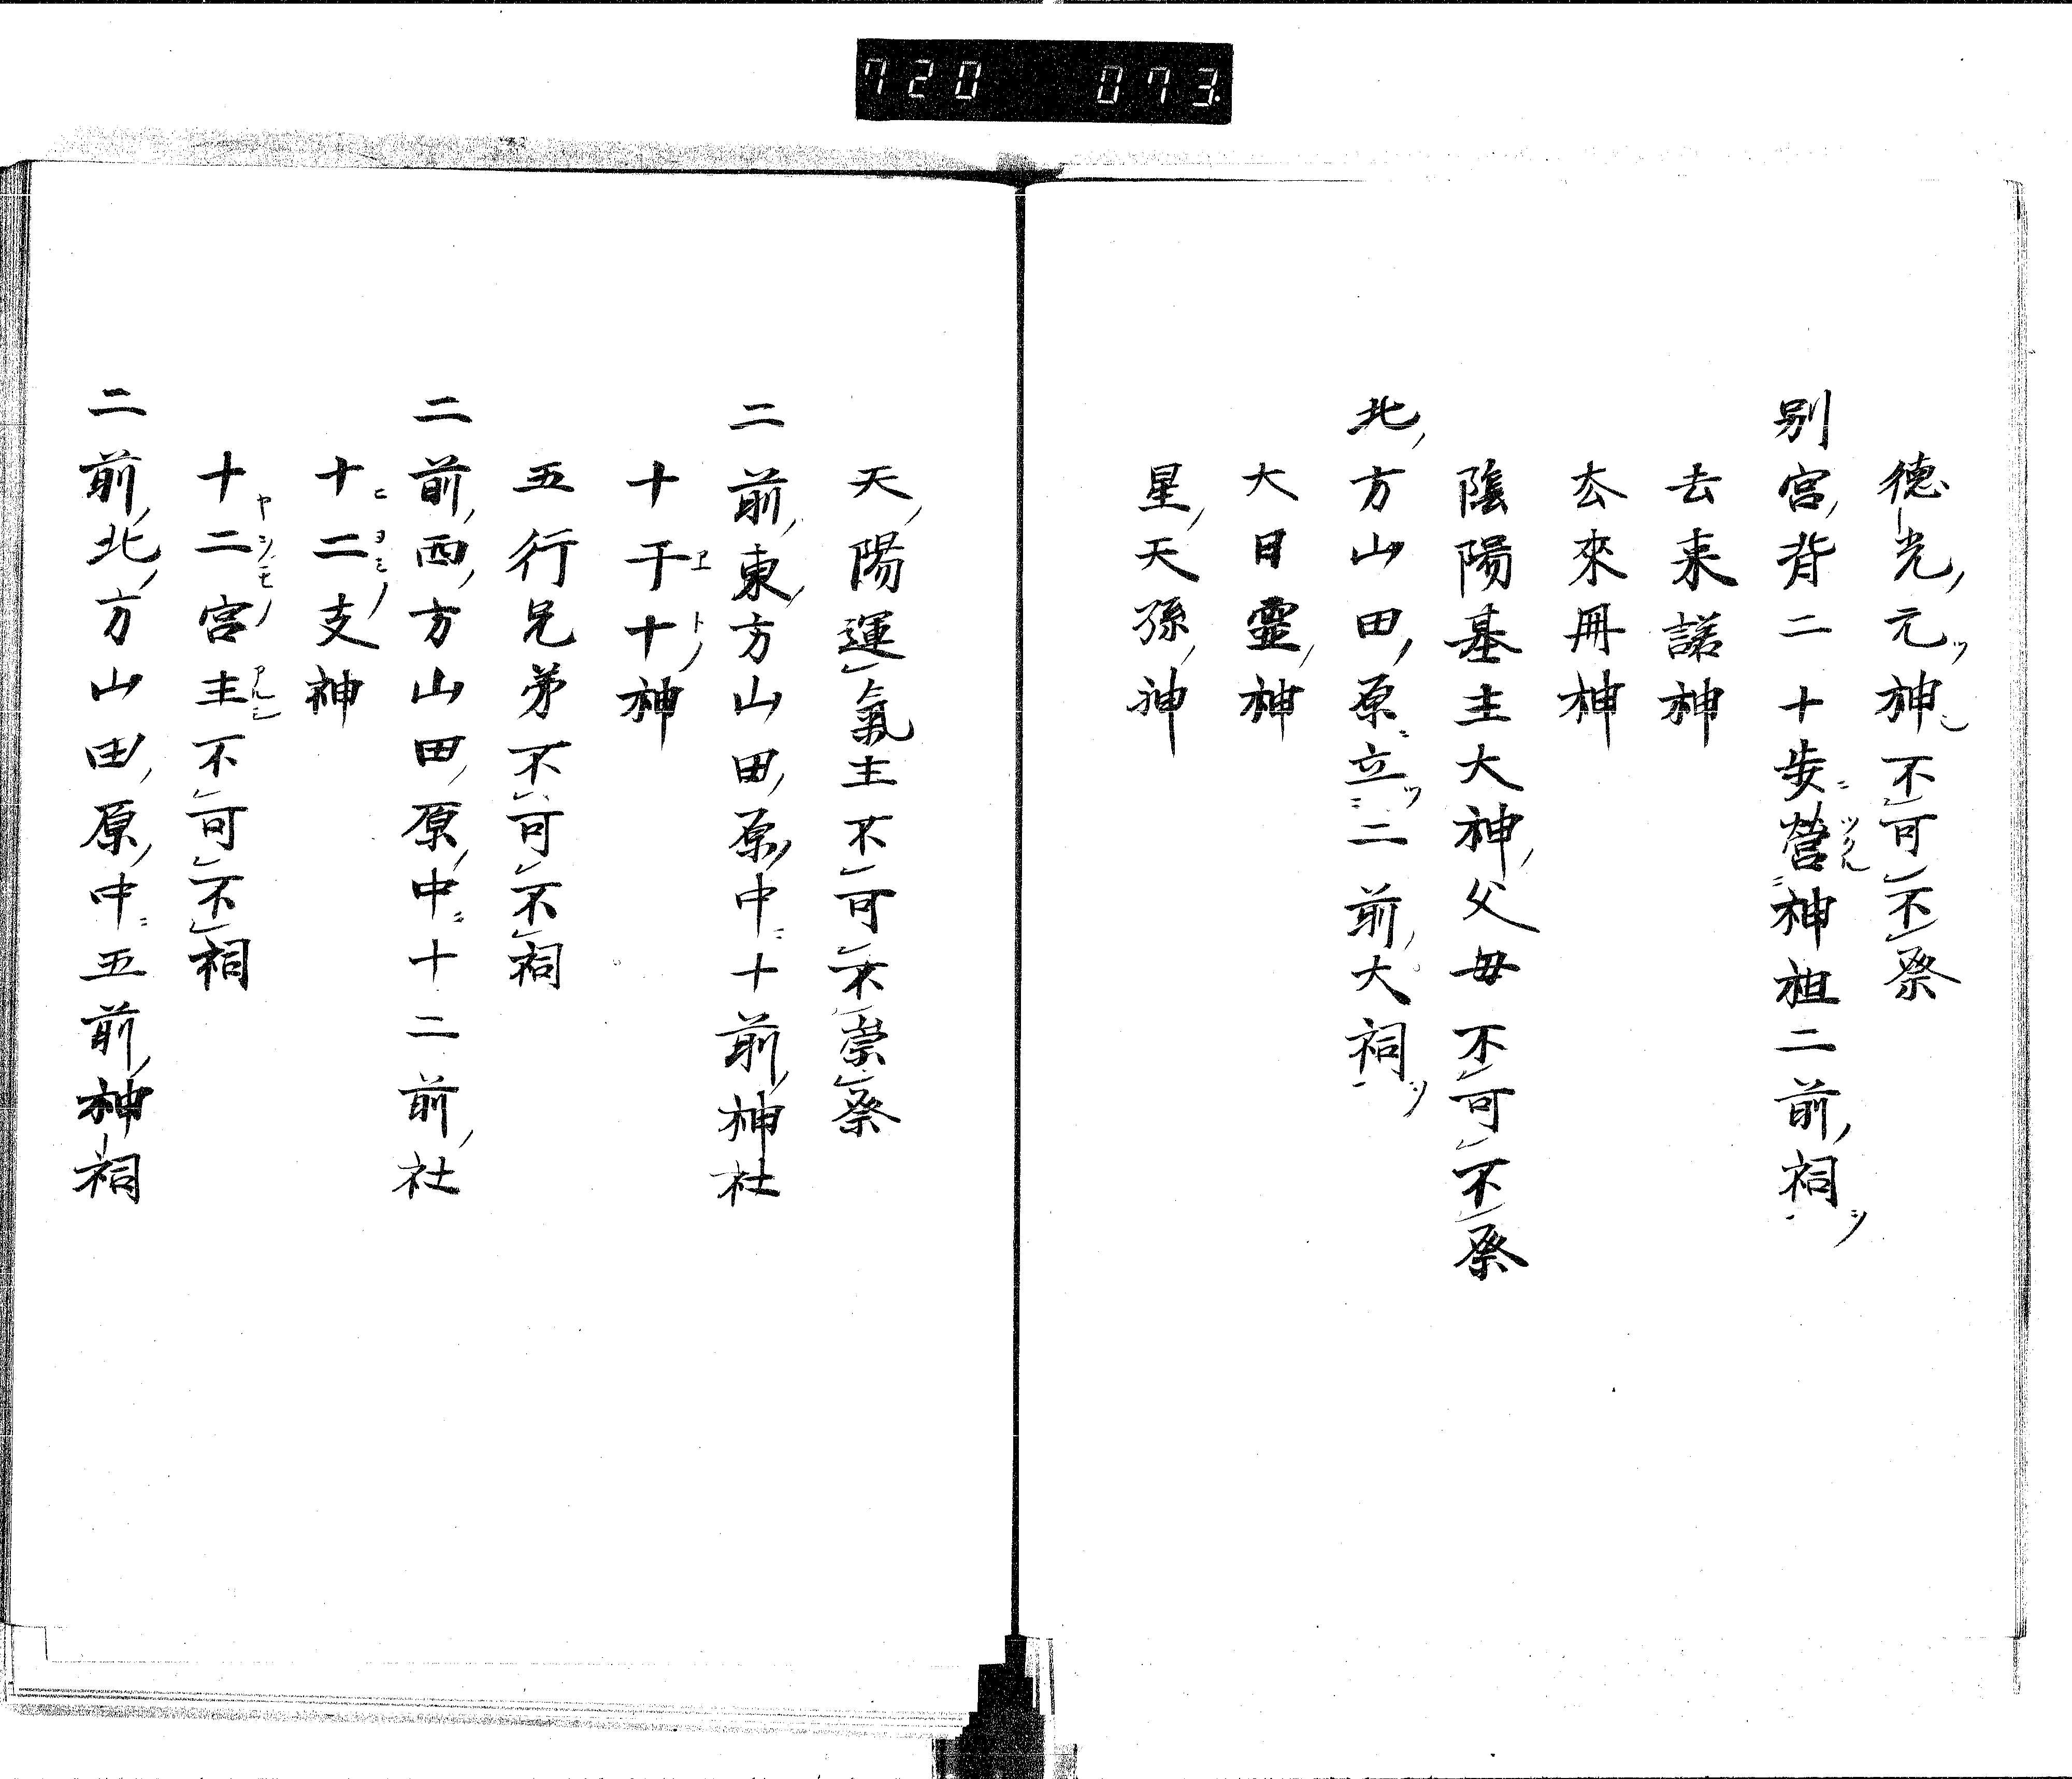 720 073
德光元神不可不祭
別宮背二十步營神祖二前祠
去来諾神
去來冊神
陰陽基主大神父母不可不祭
北方山田原立二前大祠
大日靈神
星天孫神
天陽運氣主不可不崇祭
二前東方山田原中十前神社
十干十神
五行兄弟不可不祠
二前西方山田原中十二前社
十二支神
十二宮主不可不祠
二前北方山田原中五前神祠